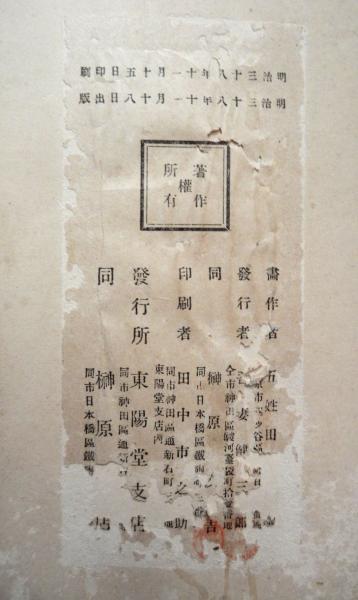 明治三十八年十一月十五日印刷
明治三十八年十一月十八日出版
著作
權
所有
畫作者 五姓田
發行者 妻三郎
仝市神田區駿河臺袋町拾壹番地
同 榊原吉
同市日本橋區
印刷者 田中市之助
同市神田區通新石町
東陽堂支店內
發行所 東陽堂支店
同市神田區通新
同 榊原店
同市日本橋區